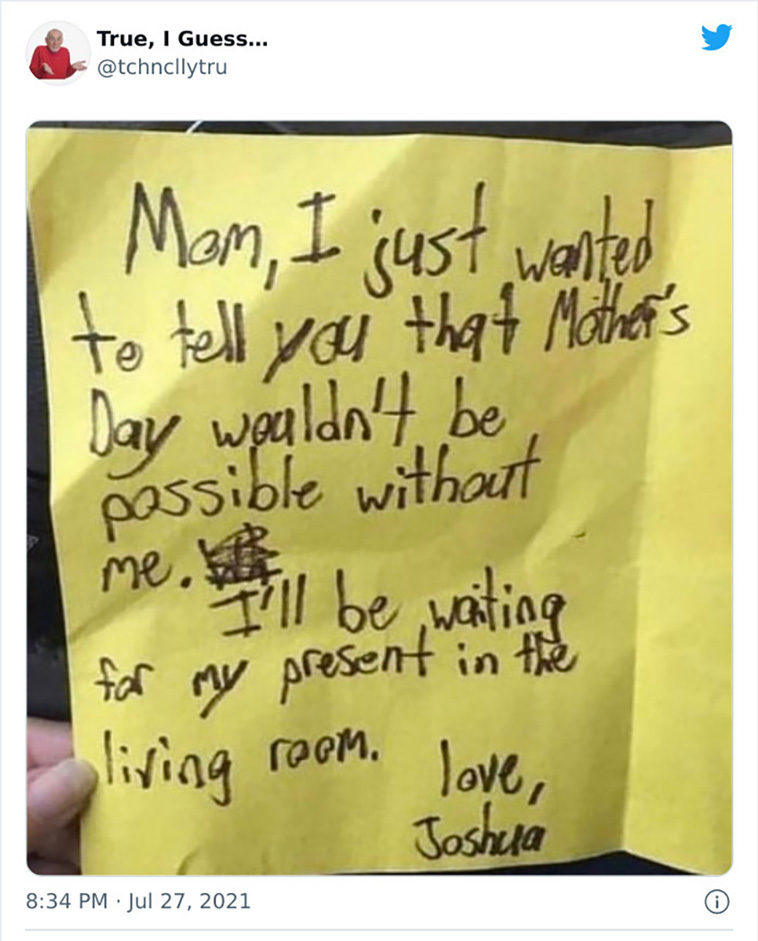 True, I Guess...
@tchncllytru
Mom, I just wanted
to tell you that Mother's
Day wouldn't be
possible without
me.
I'll be waiting
for my present in the
living room.
love,
Joshua
8:34 PM · Jul 27, 2021